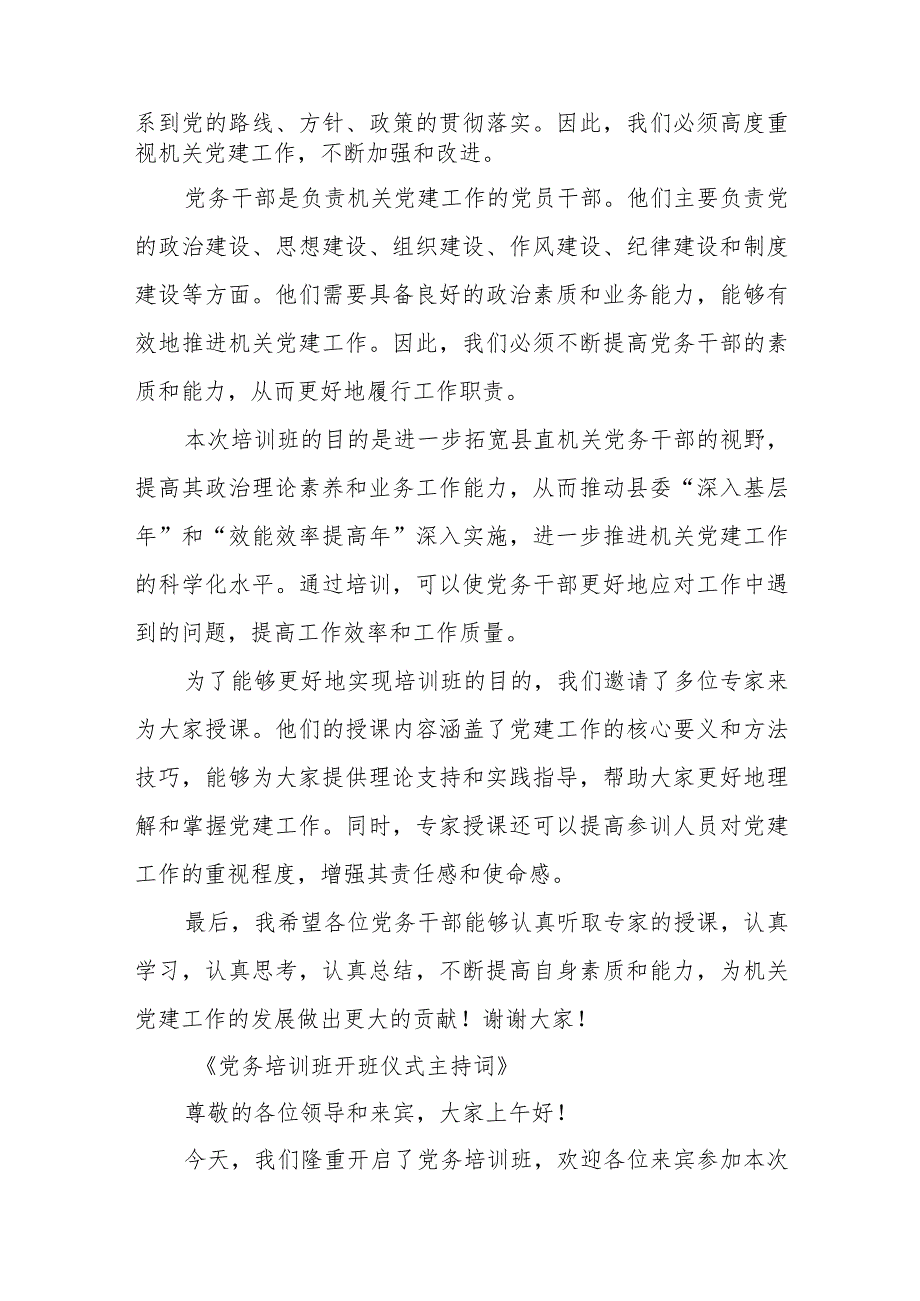 系到党的路线、方针、政策的贯彻落实。因此，我们必须高度重
视机关党建工作，不断加强和改进。
党务干部是负责机关党建工作的党员干部。他们主要负责党
的政治建设、思想建设、组织建设、作风建设、纪律建设和制度
建设等方面。他们需要具备良好的政治素质和业务能力，能够有
效地推进机关党建工作。因此，我们必须不断提高党务干部的素
质和能力，从而更好地履行工作职责。
本次培训班的目的是进一步拓宽县直机关党务干部的视野，
提高其政治理论素养和业务工作能力，从而推动县委“深入基层
年”和“效能效率提高年”深入实施，进一步推进机关党建工作
的科学化水平。通过培训，可以使党务干部更好地应对工作中遇
到的问题，提高工作效率和工作质量。
为了能够更好地实现培训班的目的，我们邀请了多位专家来
为大家授课。他们的授课内容涵盖了党建工作的核心要义和方法
技巧，能够为大家提供理论支持和实践指导，帮助大家更好地理
解和掌握党建工作。同时，专家授课还可以提高参训人员对党建
工作的重视程度，增强其责任感和使命感。
最后，我希望各位党务干部能够认真听取专家的授课，认真
学习，认真思考，认真总结，不断提高自身素质和能力，为机关
党建工作的发展做出更大的贡献！谢谢大家！
《党务培训班开班仪式主持词》
尊敬的各位领导和来宾，大家上午好！
今天，我们隆重开启了党务培训班，欢迎各位来宾参加本次